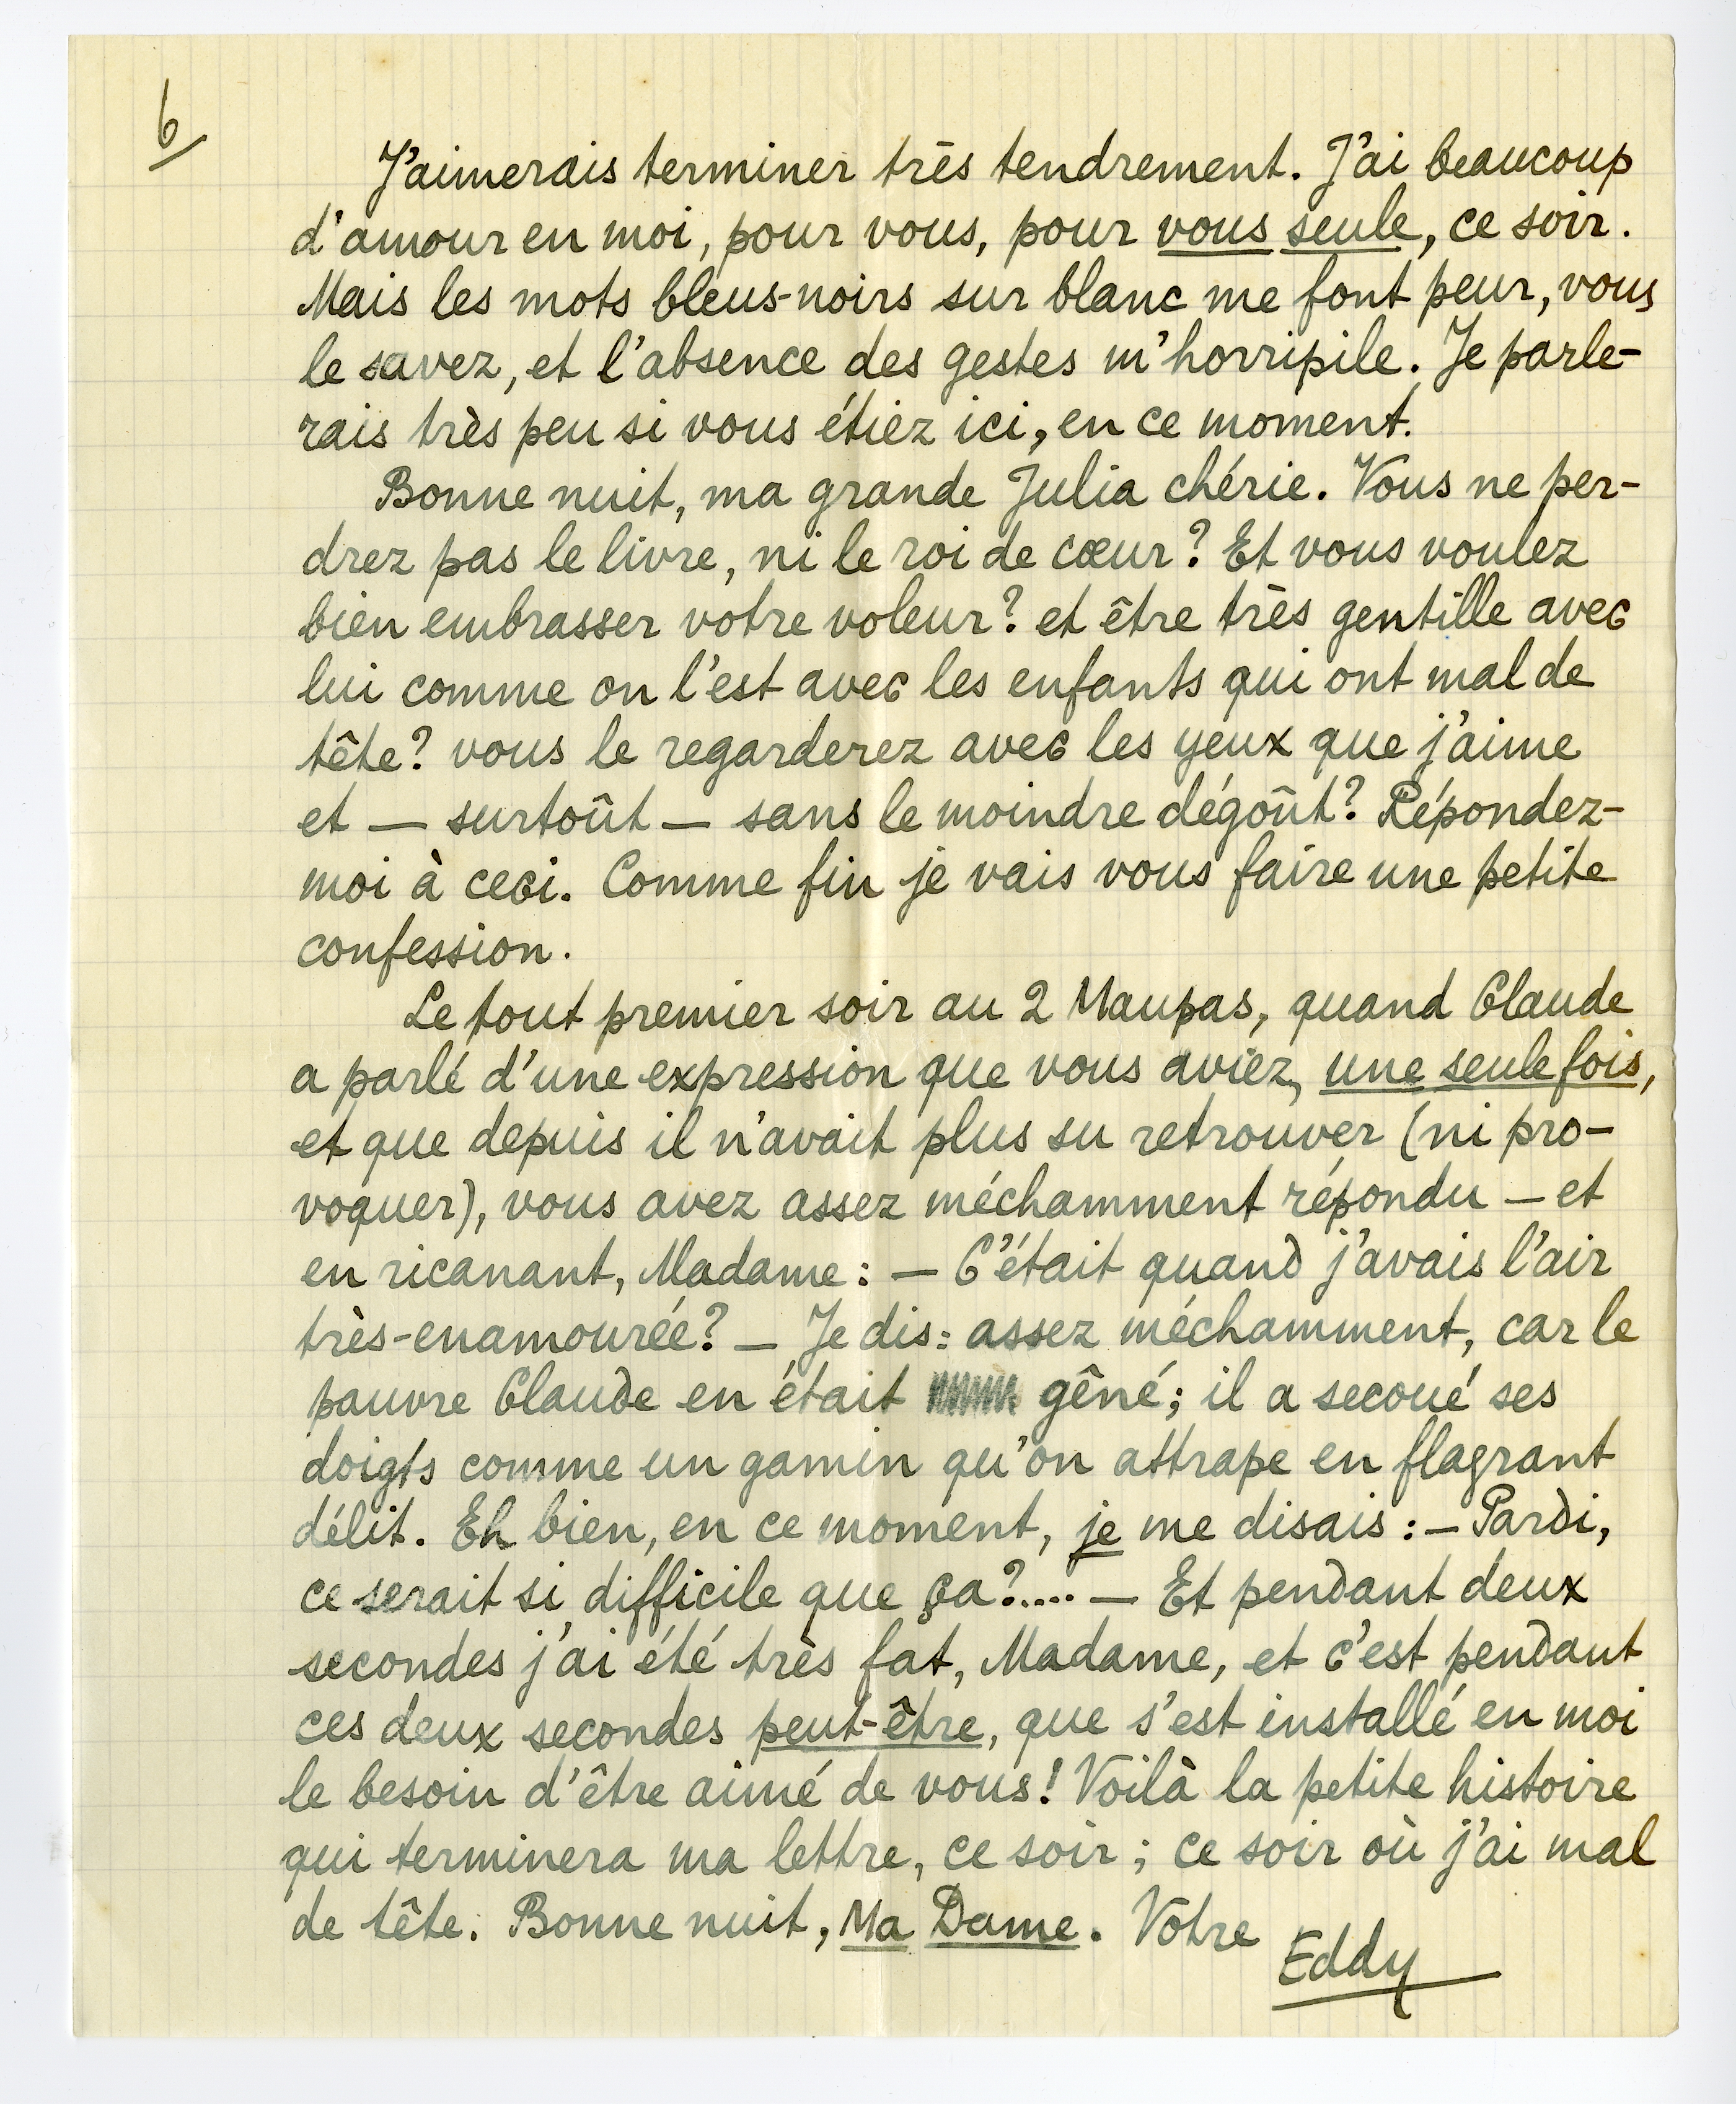 6/
J'aimerais terminer très tendrement. J'ai beaucoup
d'amour en moi, pour vous, pour vous seule, ce soir.
Mais les mots bleus-noirs sur blanc me font peur, vous
le savez, et l'absence des gestes m'horripile. Je parle-
rais très peu si vous étiez ici, en ce moment.
Bonne nuit, ma grande Julia chérie. Vous ne per-
drez pas le livre, ni le roi de cœur? Et vous voulez
bien embrasser votre voleur? et être très gentille avec
lui comme on l'est avec les enfants qui ont mal de
tête? vous le regarderez avec les yeux que j'aime
et — surtoût — sans le moindre dégoût? Répondez-
moi à ceci. Comme fin je vais vous faire une petite
confession.
Le tout premier soir au 2 Maupas, quand Claude
a parlé d'une expression que vous aviez, une seule fois,
et que depuis il n'avait plus su retrouver (ni pro-
voquer), vous avez assez méchamment répondu — et
en ricanant, Madame: — C'était quand j'avais l'air
très-enamourée? — Je dis: assez méchamment, car le
pauvre Claude en était gêné; il a secoué ses
doigts comme un gamin qu'on attrape en flagrant
délit. Eh bien, en ce moment, je me disais: — Pardi,
ce serait si difficile que ça?.... — Et pendant deux
secondes j'ai été très fat, Madame, et c'est pendant
ces deux secondes peut-être, que s'est installé en moi
le besoin d'être aimé de vous! Voilà la petite histoire
qui terminera ma lettre, ce soir; ce soir où j'ai mal
de tête. Bonne nuit, Ma Dame. Vôtre
Eddy